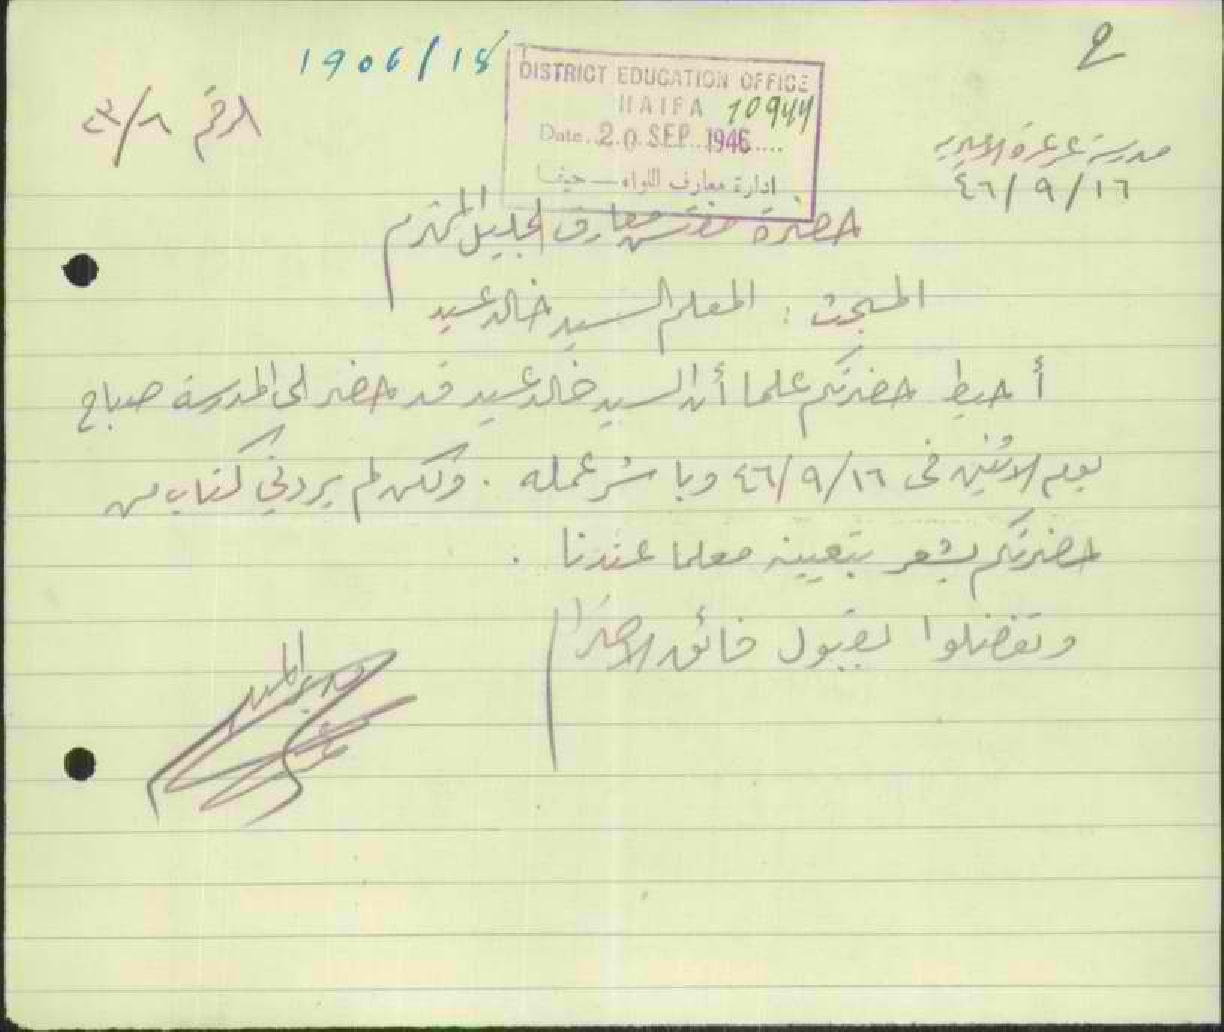 2
1906/18
DISTRICT EDUCATION OFFICE
HAIFA 10944
Date. 20 SEP 1946....
ادارة معارف اللواء — حيفا
مدرسة عرعرة الاميرية
٤٦/٩/١٦
الرقم
حضرة مفتش معارف الجليل المحترم
المبحث : المعلم السيد خالد عبيد
أحيط حضرتكم علما أن السيد خالد عبيد قد حضر الى المدرسة صباح
يوم الاثنين في ٤٦/٩/١٦ وباشر عمله . ولكن لم يردني كتاب من
حضرتكم يشعر بتعيينه معلما عندنا .
وتفضلوا بقبول فائق الاحترام
مدير المدرسة